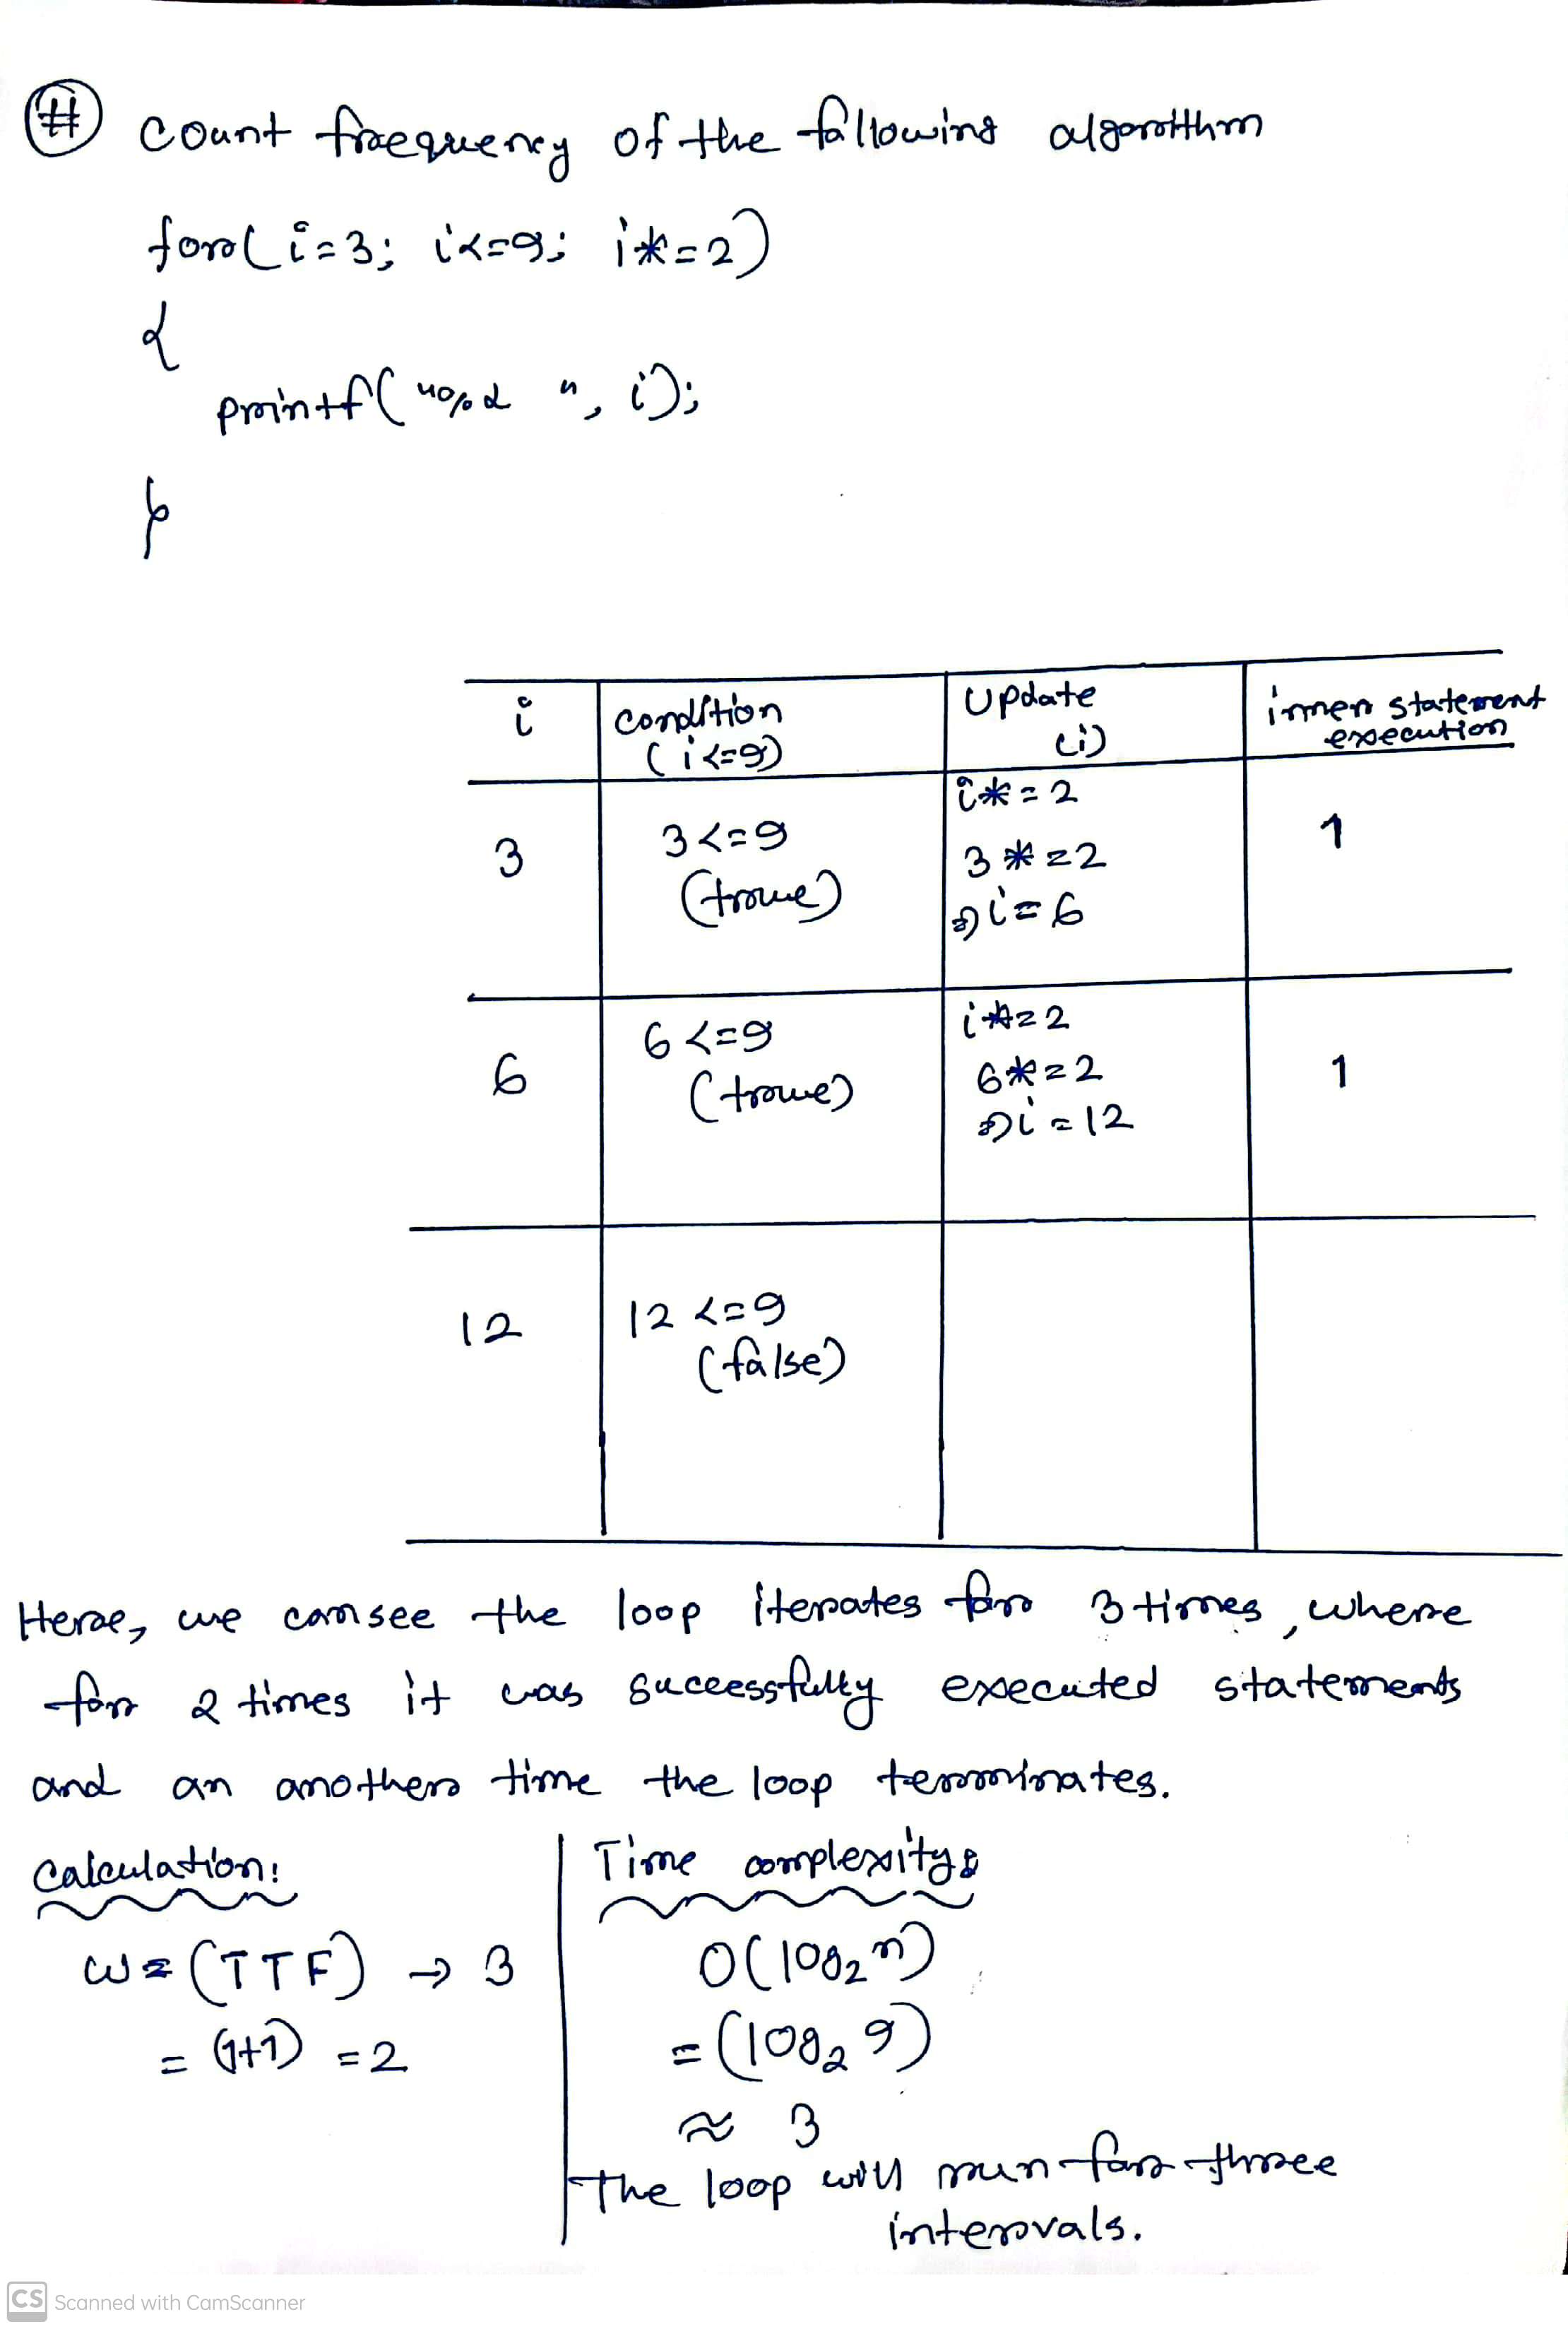 # count frequency of the following algorithm
for(i=3; i<=9; i*=2)
{
printf("%d ", i);
}
i | condition (i<=9) | update (i) | inner statement execution
3 | 3<=9 (true) | i*=2 3*=2 ⇒ i=6 | 1
6 | 6<=9 (true) | i*=2 6*=2 ⇒ i=12 | 1
12 | 12<=9 (false)
Here, we can see the loop iterates for 3 times, where
for 2 times it was successfully executed statements
and an another time the loop terminates.
calculation:
ω = (TTF) → 3
= (1+1) = 2
Time complexity:
O(log₂n)
= (log₂9)
≈ 3
The loop will run for three
intervals.
CS Scanned with CamScanner